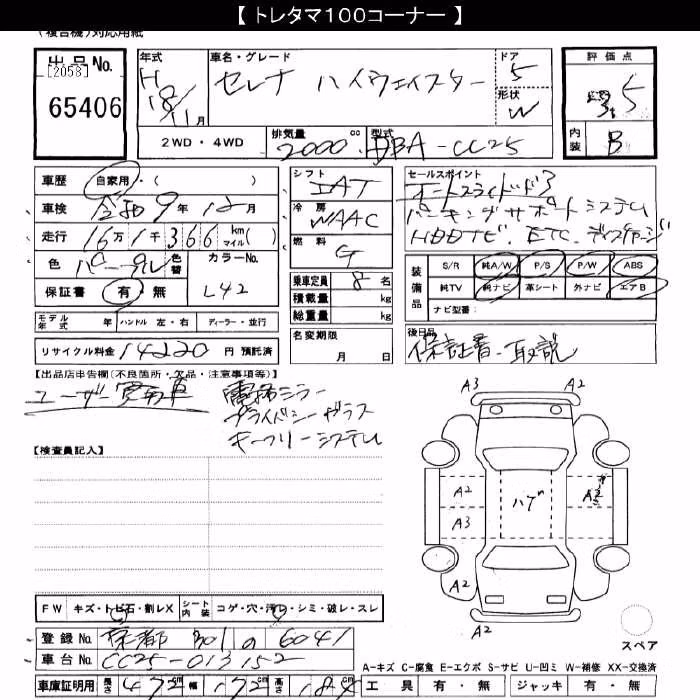 【 トレタマ100コーナー 】
(複合機)対応用紙
出品No.
[2058]
65406
年式
H
18/11月
車名・グレード
セレナ ハイウェイスター
ドア
5
形状
W
評価点
3.5
内装
B
2WD・4WD
排気量
2000 cc
型式
DBA-CC25
車歴 自家用・( )
車検 令和9年12月
走行 16万1千366 km マイル( )
色 パープル 色替
カラーNo.
L42
保証書 有 無
シフト
IAT
冷房
WAAC
燃料
G
乗車定員 8名
積載量 kg
総重量 kg
名変期限
月 日
セールスポイント
オートスライドドア
パーキングサポートシステム
HDDナビ. ETC.
装備品
S/R 純A/W P/S P/W ABS
純TV 純ナビ 革シート 外ナビ エアB
ナビ型番:
モデル年式 年 ハンドル 左・右 ディーラー・並行
リサイクル料金 14220 円 預託済
後日品
保証書・取説
【出品店申告欄(不良箇所・欠品・注意事項等)】
ユーザー買取車
電格ミラー
プライバシーガラス
キーフリーシステム
【検査員記入】
A3
A2
A2
A3
A2
ハブ
A2
A2
スペア
FW キズ・トビ石・割レX シート内装 コゲ・穴・汚レ・シミ・破レ・スレ
登録No. 京都 301 の 6041
車台No. CC25-013152
車庫証明用 長さ 472cm 幅 172cm 高さ 184cm
A−キズ C−腐食 E−エクボ S−サビ U−凹ミ W−補修 XX−交換済
工具 有・無 ジャッキ 有・無